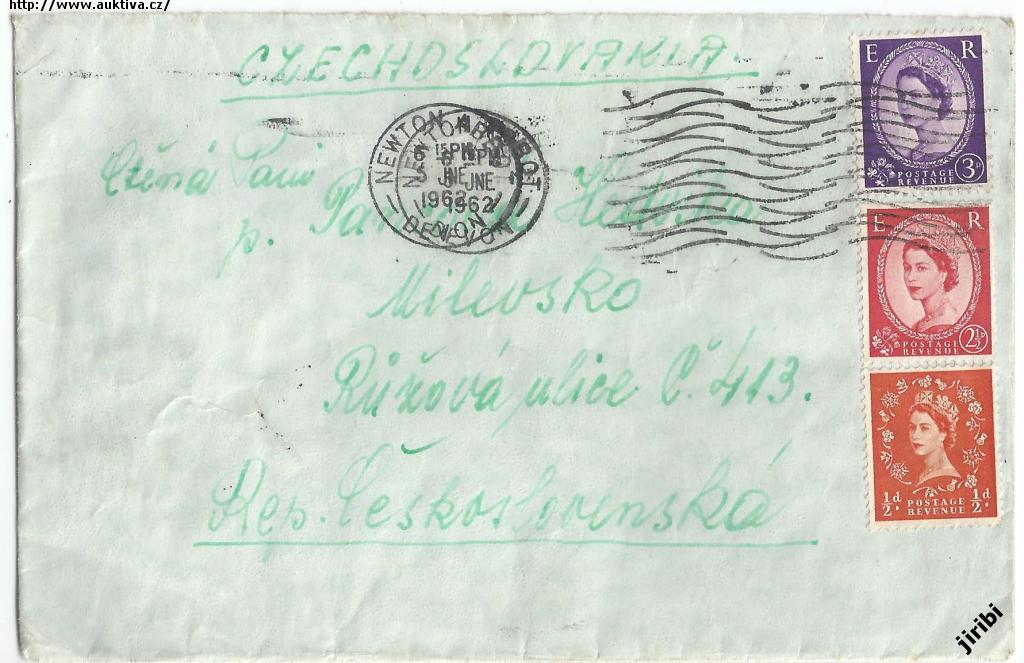 http://www.auktiva.cz/
CZECHOSLOVAKIA.
E R
POSTAGE
REVENUE 3D
NEWTON ABBOT
15 PM
5 JNE
1962
DEVON
Ctěná Paní
p.
Milevsko
Růžová ulice Č. 413.
Rep. Československá
E R
POSTAGE
REVENUE 2½D
½d. POSTAGE ½d.
REVENUE
jiribi